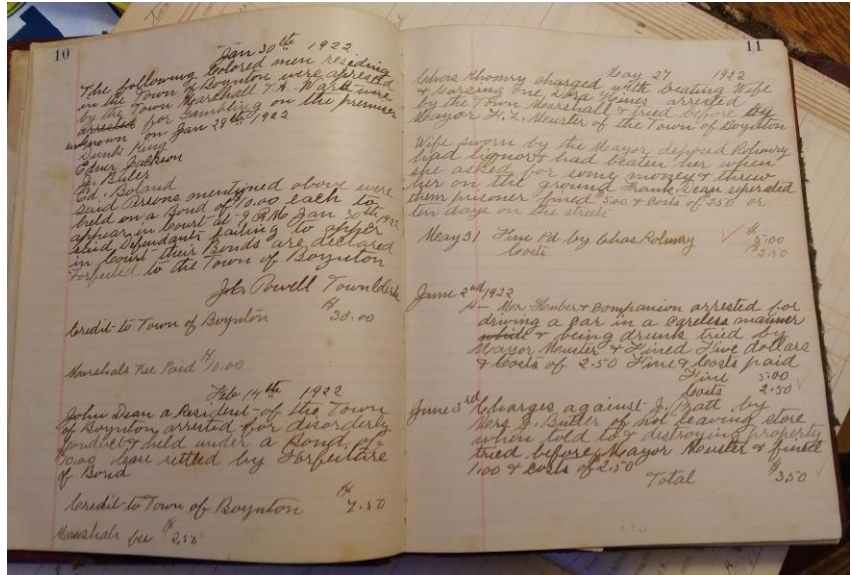 10
Jan 30th 1922
The following Colored men residing
in the Town of Boynton were arrested
by the Town Marshall T.A. were
arrested for Gambling on the premises
unknown on Jan 29th 1922
King
Edner Jackson
J. Butler
Ed. Boland
Said Persons mentioned above were
held on a Bond of 10.00 each to
appear in Court at 9 Jan 30th 1922
said Defendants failing to apper
in Court their Bonds are declared
Forfeited to the Town of Boynton
J.C. Powell Town Clerk
Credit to Town of Boynton $30.00
Marshals Fee Paid $10.00
Feb 14th 1922
John Dean a Resident of the Town
of Boynton arrested for disorderly
conduct & held under a Bond of
10.00 Case settled by Forfeiture
of Bond
Credit to Town of Boynton $7.50
Marshals fee $2.50
11
May 27 1922
Chas charged with beating Wife
& Cursing one arrested
by the Town Marshall & tried before
Mayor of the Town of Boynton
Wife sworn by the Mayor deposed
had liquor & had beaten her when
she asked for some money & threw
her on the ground Frank Dean seperated
them prisoner fined 5.00 & Costs of 2.50 or
ten days on the streets
May 31 Fine Pd by Chas $5.00
Costs $2.50
June 2nd 1922
& Companion arrested for
driving a car in a careless manner
while & being drunk tried by
Mayor & Fined Five dollars
& Costs of 2.50 Fine & Costs paid
Fine 5.00
Costs 2.50
June 3rd Charges against J. Pratt by
Mers J. Butler of not leaving store
when told to & destroying property
tried before Mayor & fined
1.00 & costs of $2.50
Total $3.50